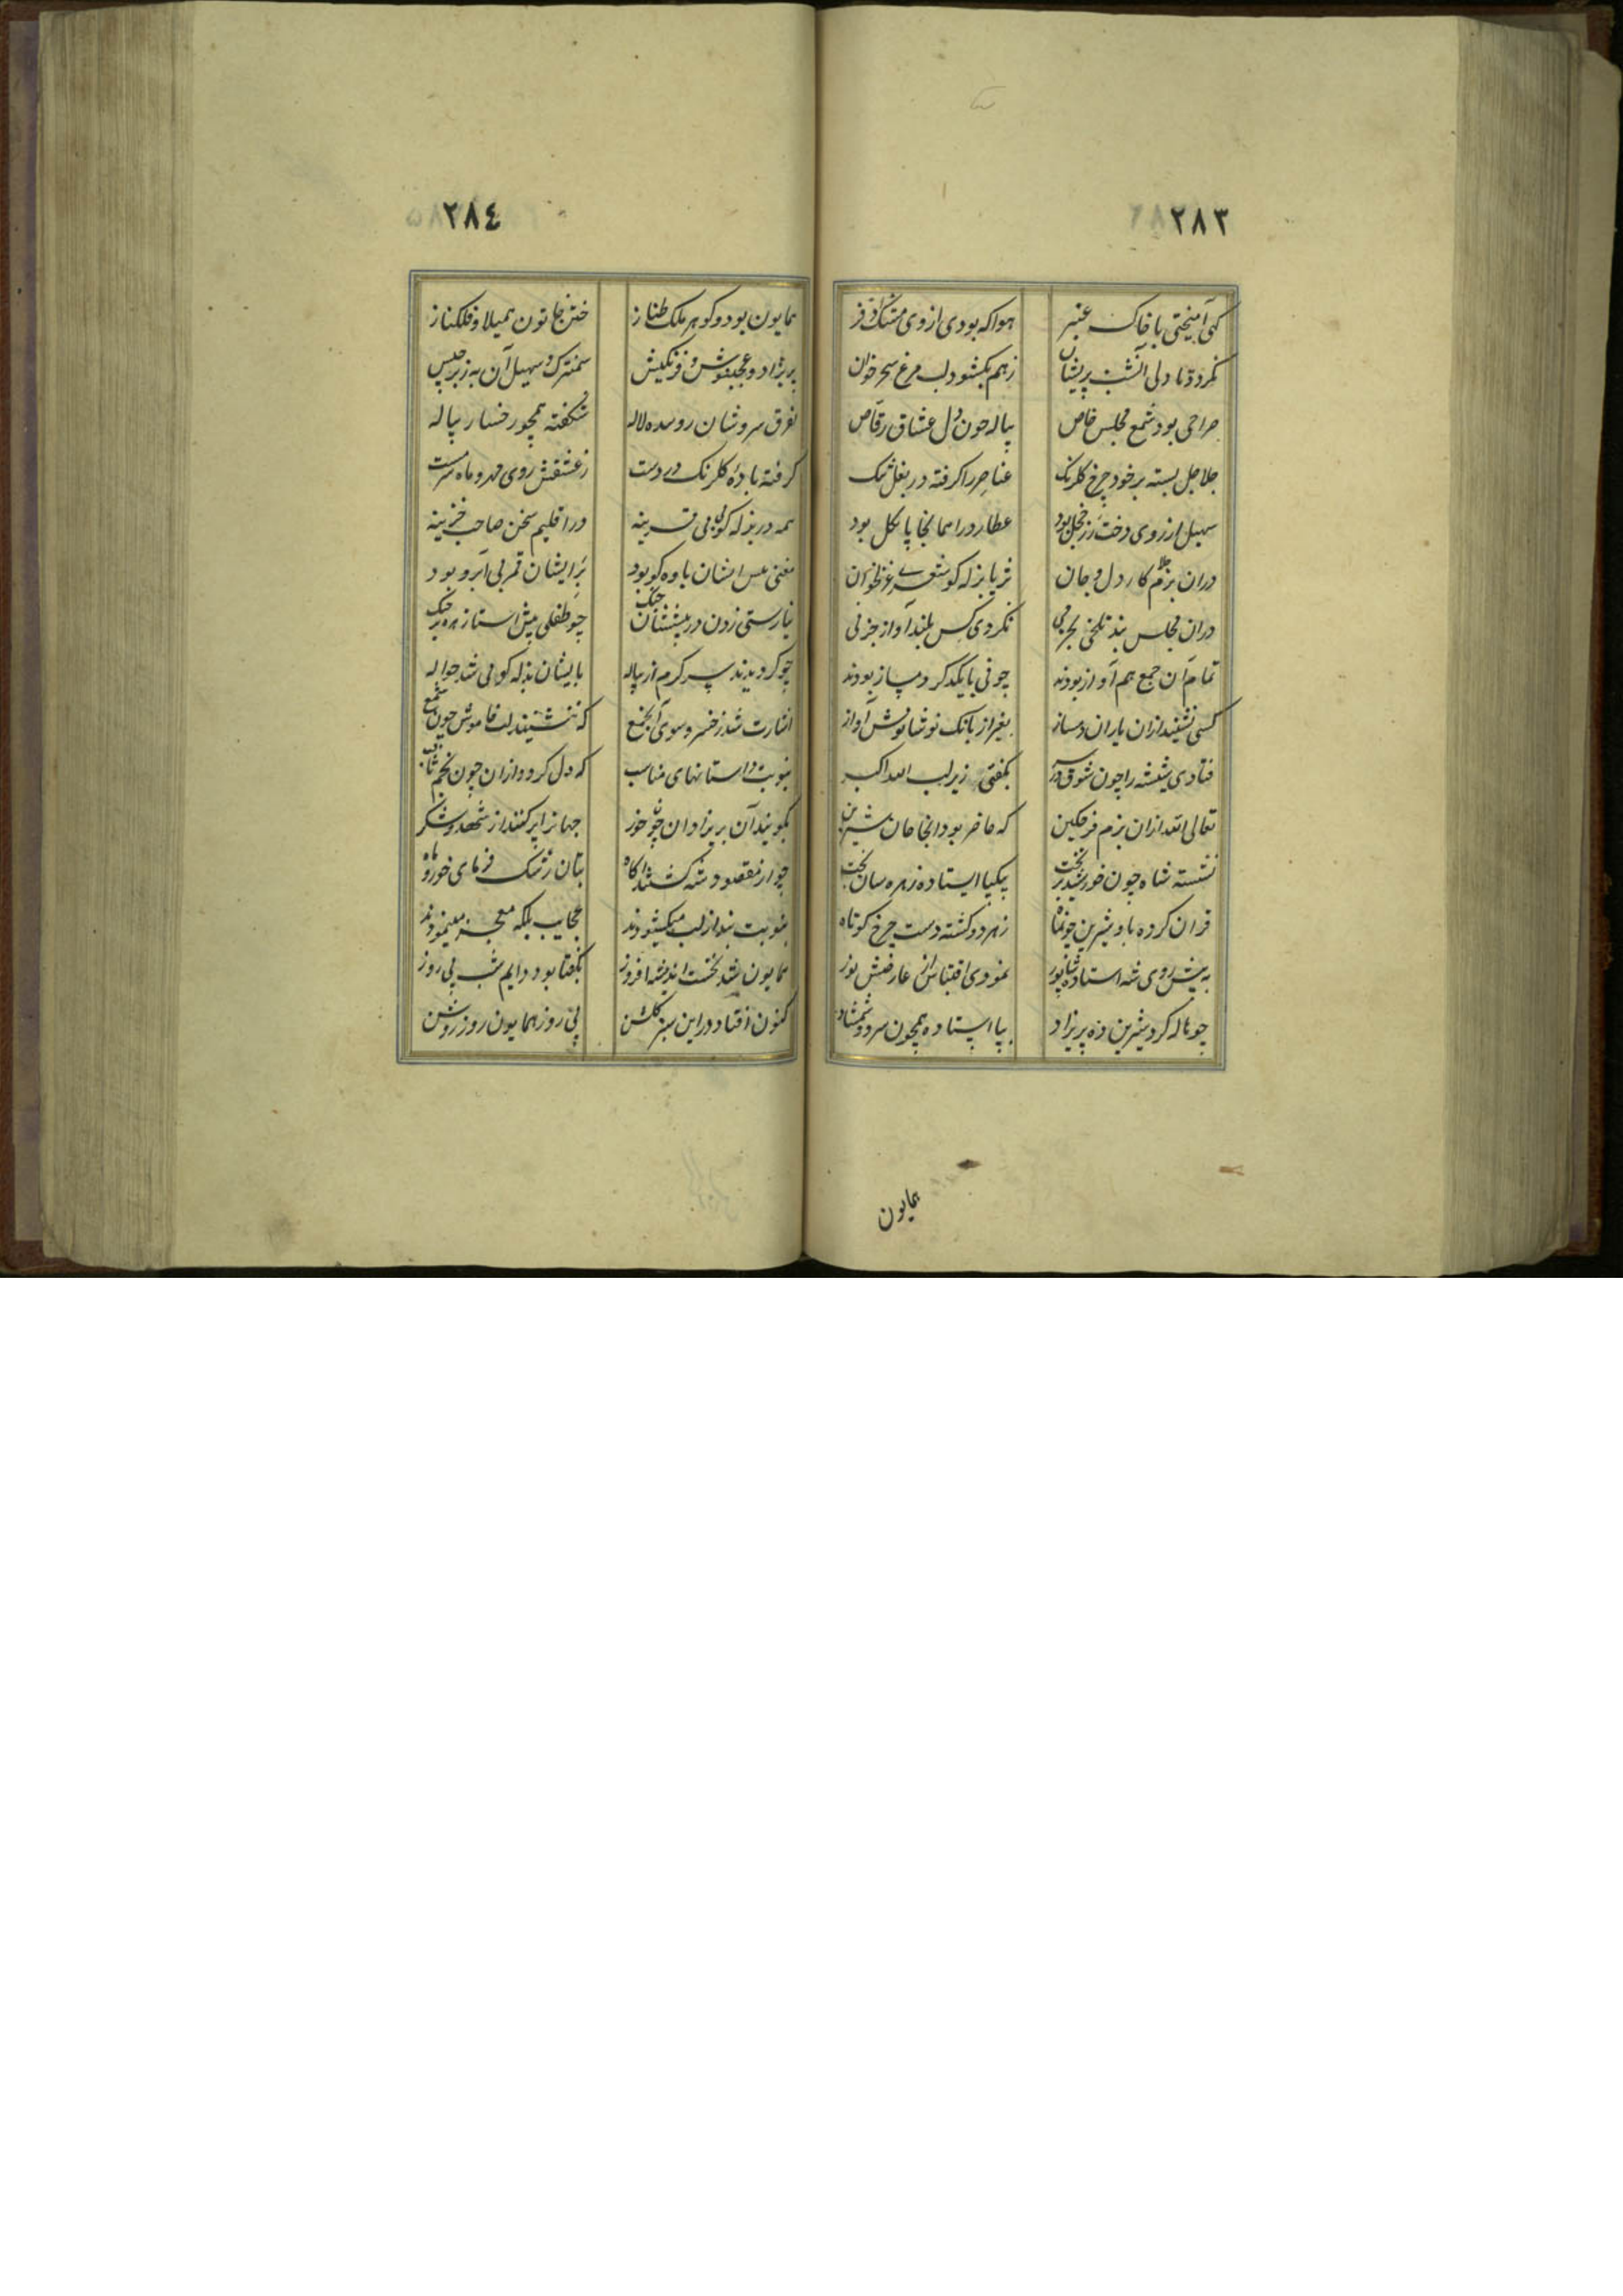 ٢٨٣
گهی آمیختی با خاک عنبر هوا که بودی از وی مشک اذفر
نکردد تا دلی آنشب پریشان زهم نکشود لب مرغ سحر خوان
صراحی بود شمع مجلس خاص پیاله چون دل عشاق رقاص
جلاجل بسته بر خود چرخ گلرنگ عناصر را گرفته در بغل تنگ
سهیل از روی دخت رز خجل بود عطارد را همانجا پا بگل بود
دران بزم کار دل و جان ثریا بزله کو شعری غزلخوان
دران مجلس بند تلخی بجز می نکردی کس بلند آواز جز نی
تمام آن جمع هم آواز بودند چو نی با یکدگر دمساز بودند
کسی نشنید ازان یاران دمساز بغیر از بانگ نوشانوش آواز
فتادی شیشه را چون شوق در سر بگفتی زیر لب الله اکبر
تعالی الله ازان بزم فرحگین که حاضر بود انجا جان شیرین
نشسته شاه چون خورشید بر تخت بیکپا ایستاده زهره سان بخت
قران کرده باو شیرین چون ماه زهر دو گشته دست چرخ کوتاه
به پیش روی شه استاده شاپور نمودی اقتباس از عارضش نور
چو هاله گرد شیرین ده پریزاد بپا استاده همچون سرو و شمشاد
همایون
٢٨٤
همایون بود و گوهر ملک طناز ختن خاتون همیلا و فلکناز
پریزاد و عجبنوش و فرنگیس سمنترک و سهیل آن به ز برجیس
بفرق سروشان روییده لاله شکفته همچو رخسار پیاله
گرفته بادهٔ گلرنگ در دست زعشقش روی مهر و ماه سرمست
همه در بزله گویی بی قرینه در اقلیم سخن صاحب خزینه
مغنی پیش ایشان یاوه گو بود بر ایشان قمر بی آبرو بود
نیارستی زدن در پیششان چنگ چو طفلی پیش استا زهره بر چنگ
چو گردیدند سر گرم از پیاله بایشان بذله گویی شد حواله
اشارت شد ز خسرو سوی آنجمع که ننشینند لب خاموش چون شمع
بنوبت داستانهای مناسب که دل گردد ازان چون نجم ثاقب
بگویند آن پریزادان چون خور جهانرا پر کنند از شهد و شکر
چو از مقصود شه گشتند آگاه بتان رشک فرمای خور و ماه
بنوبت بند از لب میگشودند عجایب بلکه معجز مینمودند
همایون شد نخست اندیشه افروز بگفتا بود دایم شب پی روز
کنون افتاد در این سبز گلشن پی روز همایون روز روشن